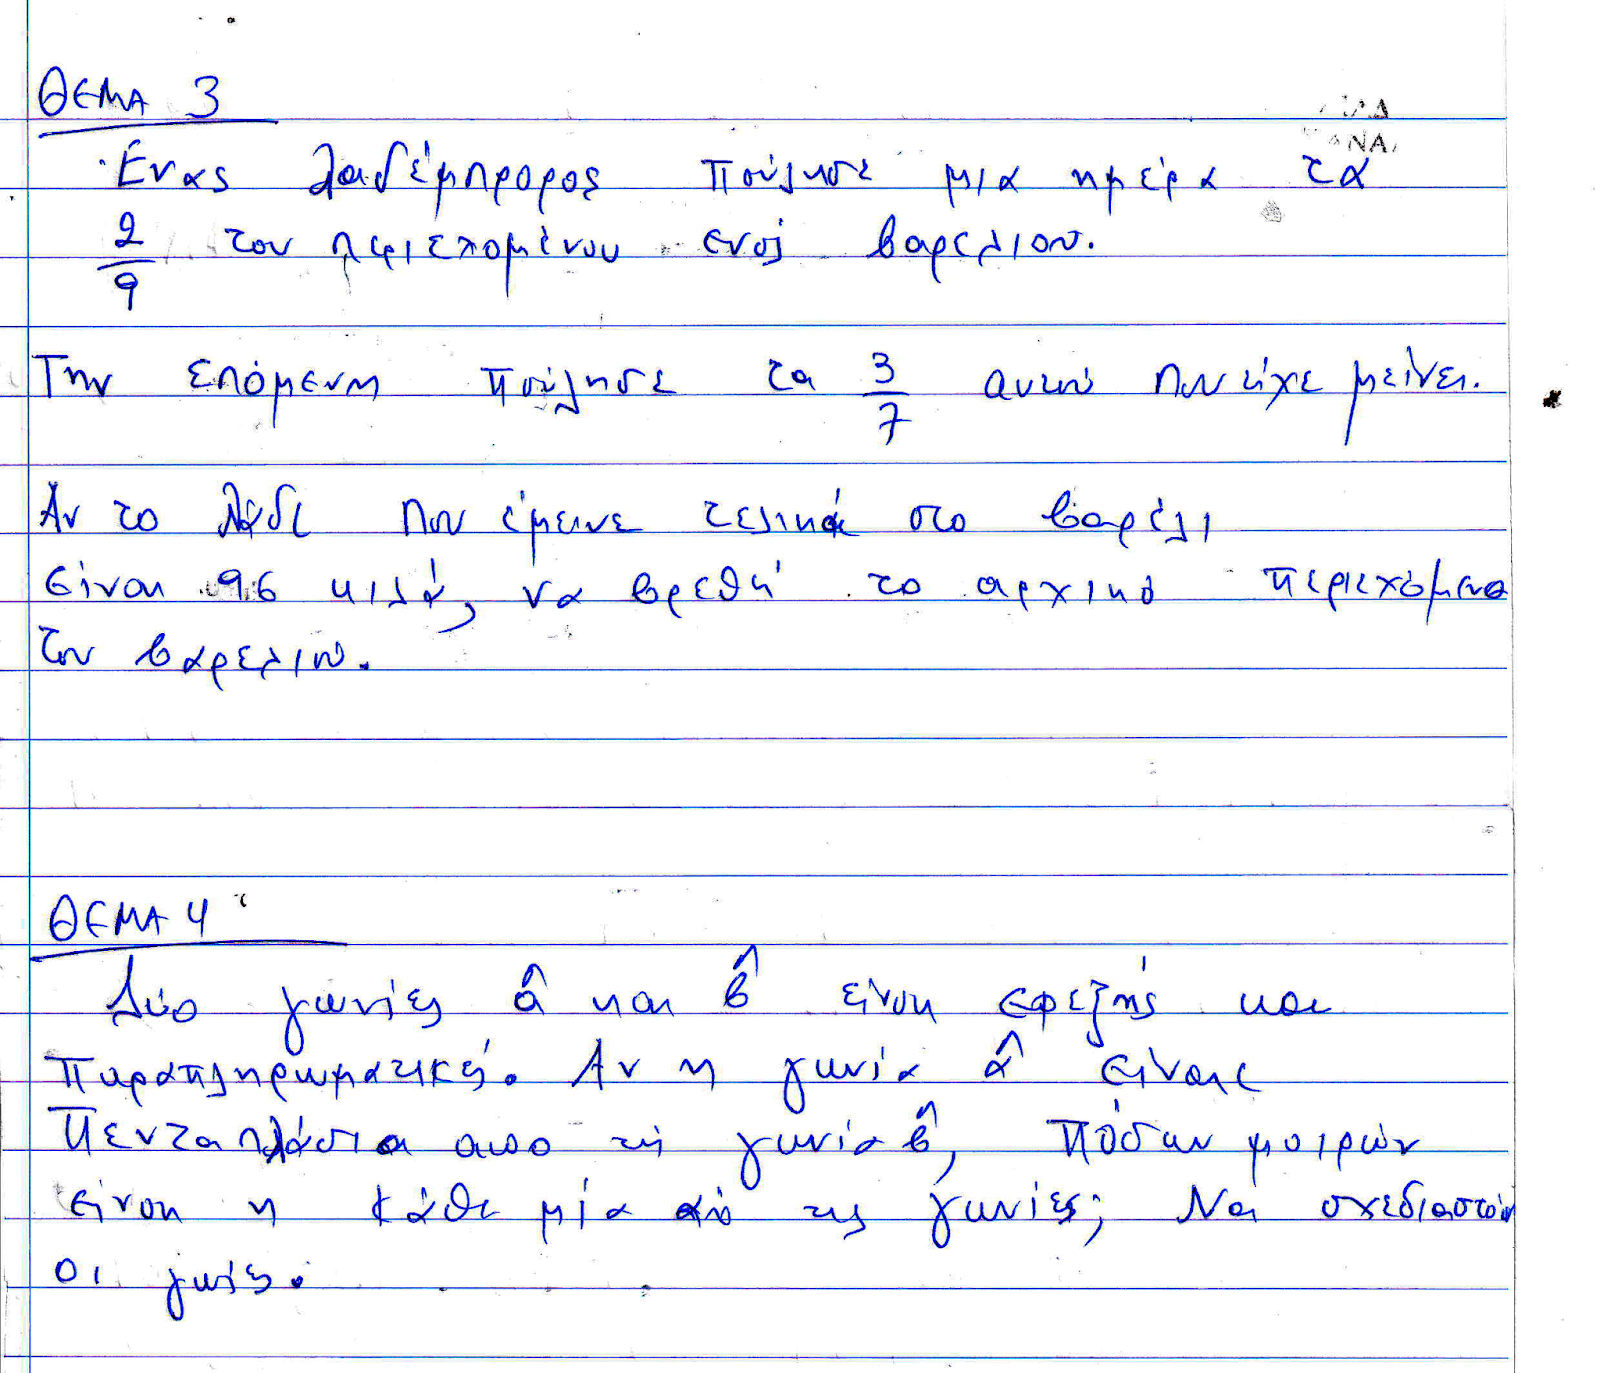 ΘΕΜΑ 3
Ένας λαδέμπορος πούλησε μια ημέρα τα
2/9 του περιεχομένου ενός βαρελιού.
Την επόμενη πούλησε τα 3/7 αυτού που είχε μείνει.
Αν το λάδι που έμεινε τελικά στο βαρέλι
είναι 96 κιλά, να βρεθή το αρχικό περιεχόμενο
του βαρελιού.
ΘΕΜΑ 4
Δύο γωνίες α̂ και β̂ είναι εφεξής και
παραπληρωματικές. Αν η γωνία α̂ είναι
πενταπλάσια απο τη γωνία β̂, πόσων μοιρών
είναι η κάθε μία από τις γωνίες; Να σχεδιαστούν
οι γωνίες.